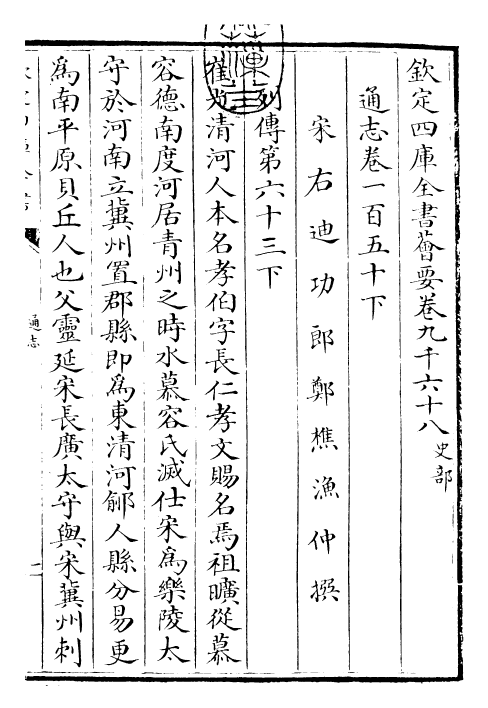 欽定四庫全書薈要卷九千六十八 史部
通志卷一百五十下
宋右迪功郎鄭樵漁仲撰
列傳第六十三下
崔光清河人本名孝伯字長仁孝文賜名焉祖曠從慕
容德南度河居青州之時水慕容氏滅仕宋為樂陵太
守於河南立冀州置郡縣即為東清河鄃人縣分易更
為南平原貝丘人也父靈延宋長廣太守與宋冀州刺
通志